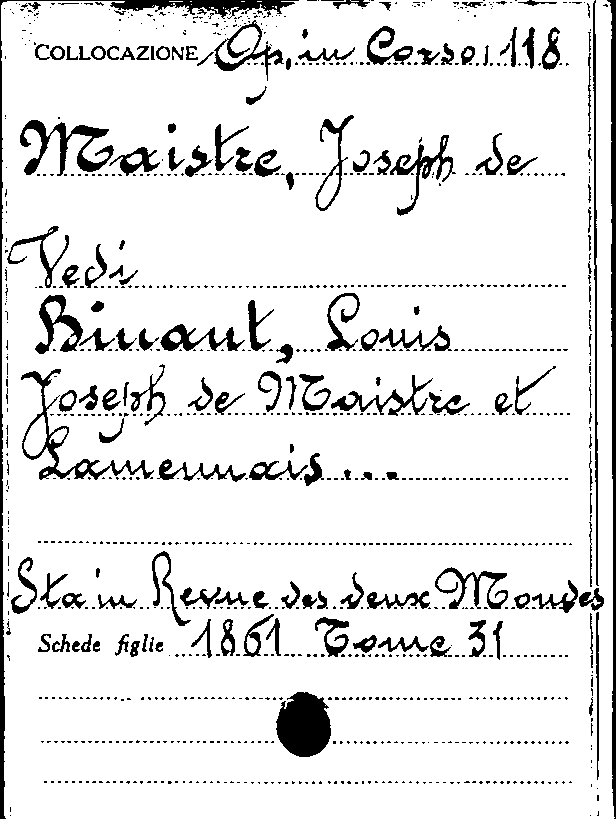 COLLOCAZIONE Op. in Corso, 118
Maistre, Joseph de
Vedi
Binaut, Louis
Joseph de Maistre et
Lamennais...
Sta in Revue des deux Mondes
Schede figlie 1861 Tome 31